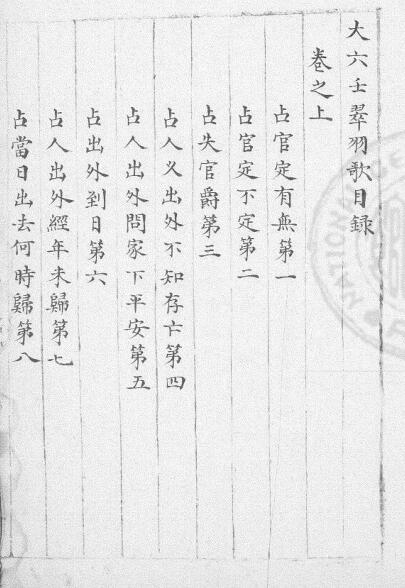 大六壬翠羽歌目録
卷之上
占官定有無第一
占官定不定第二
占失官爵第三
占人乂出外不知存亡第四
占人出外問家下平安第五
占出外到日第六
占人出外經年未歸第七
占當日出去何時歸第八
NATIONAL CE